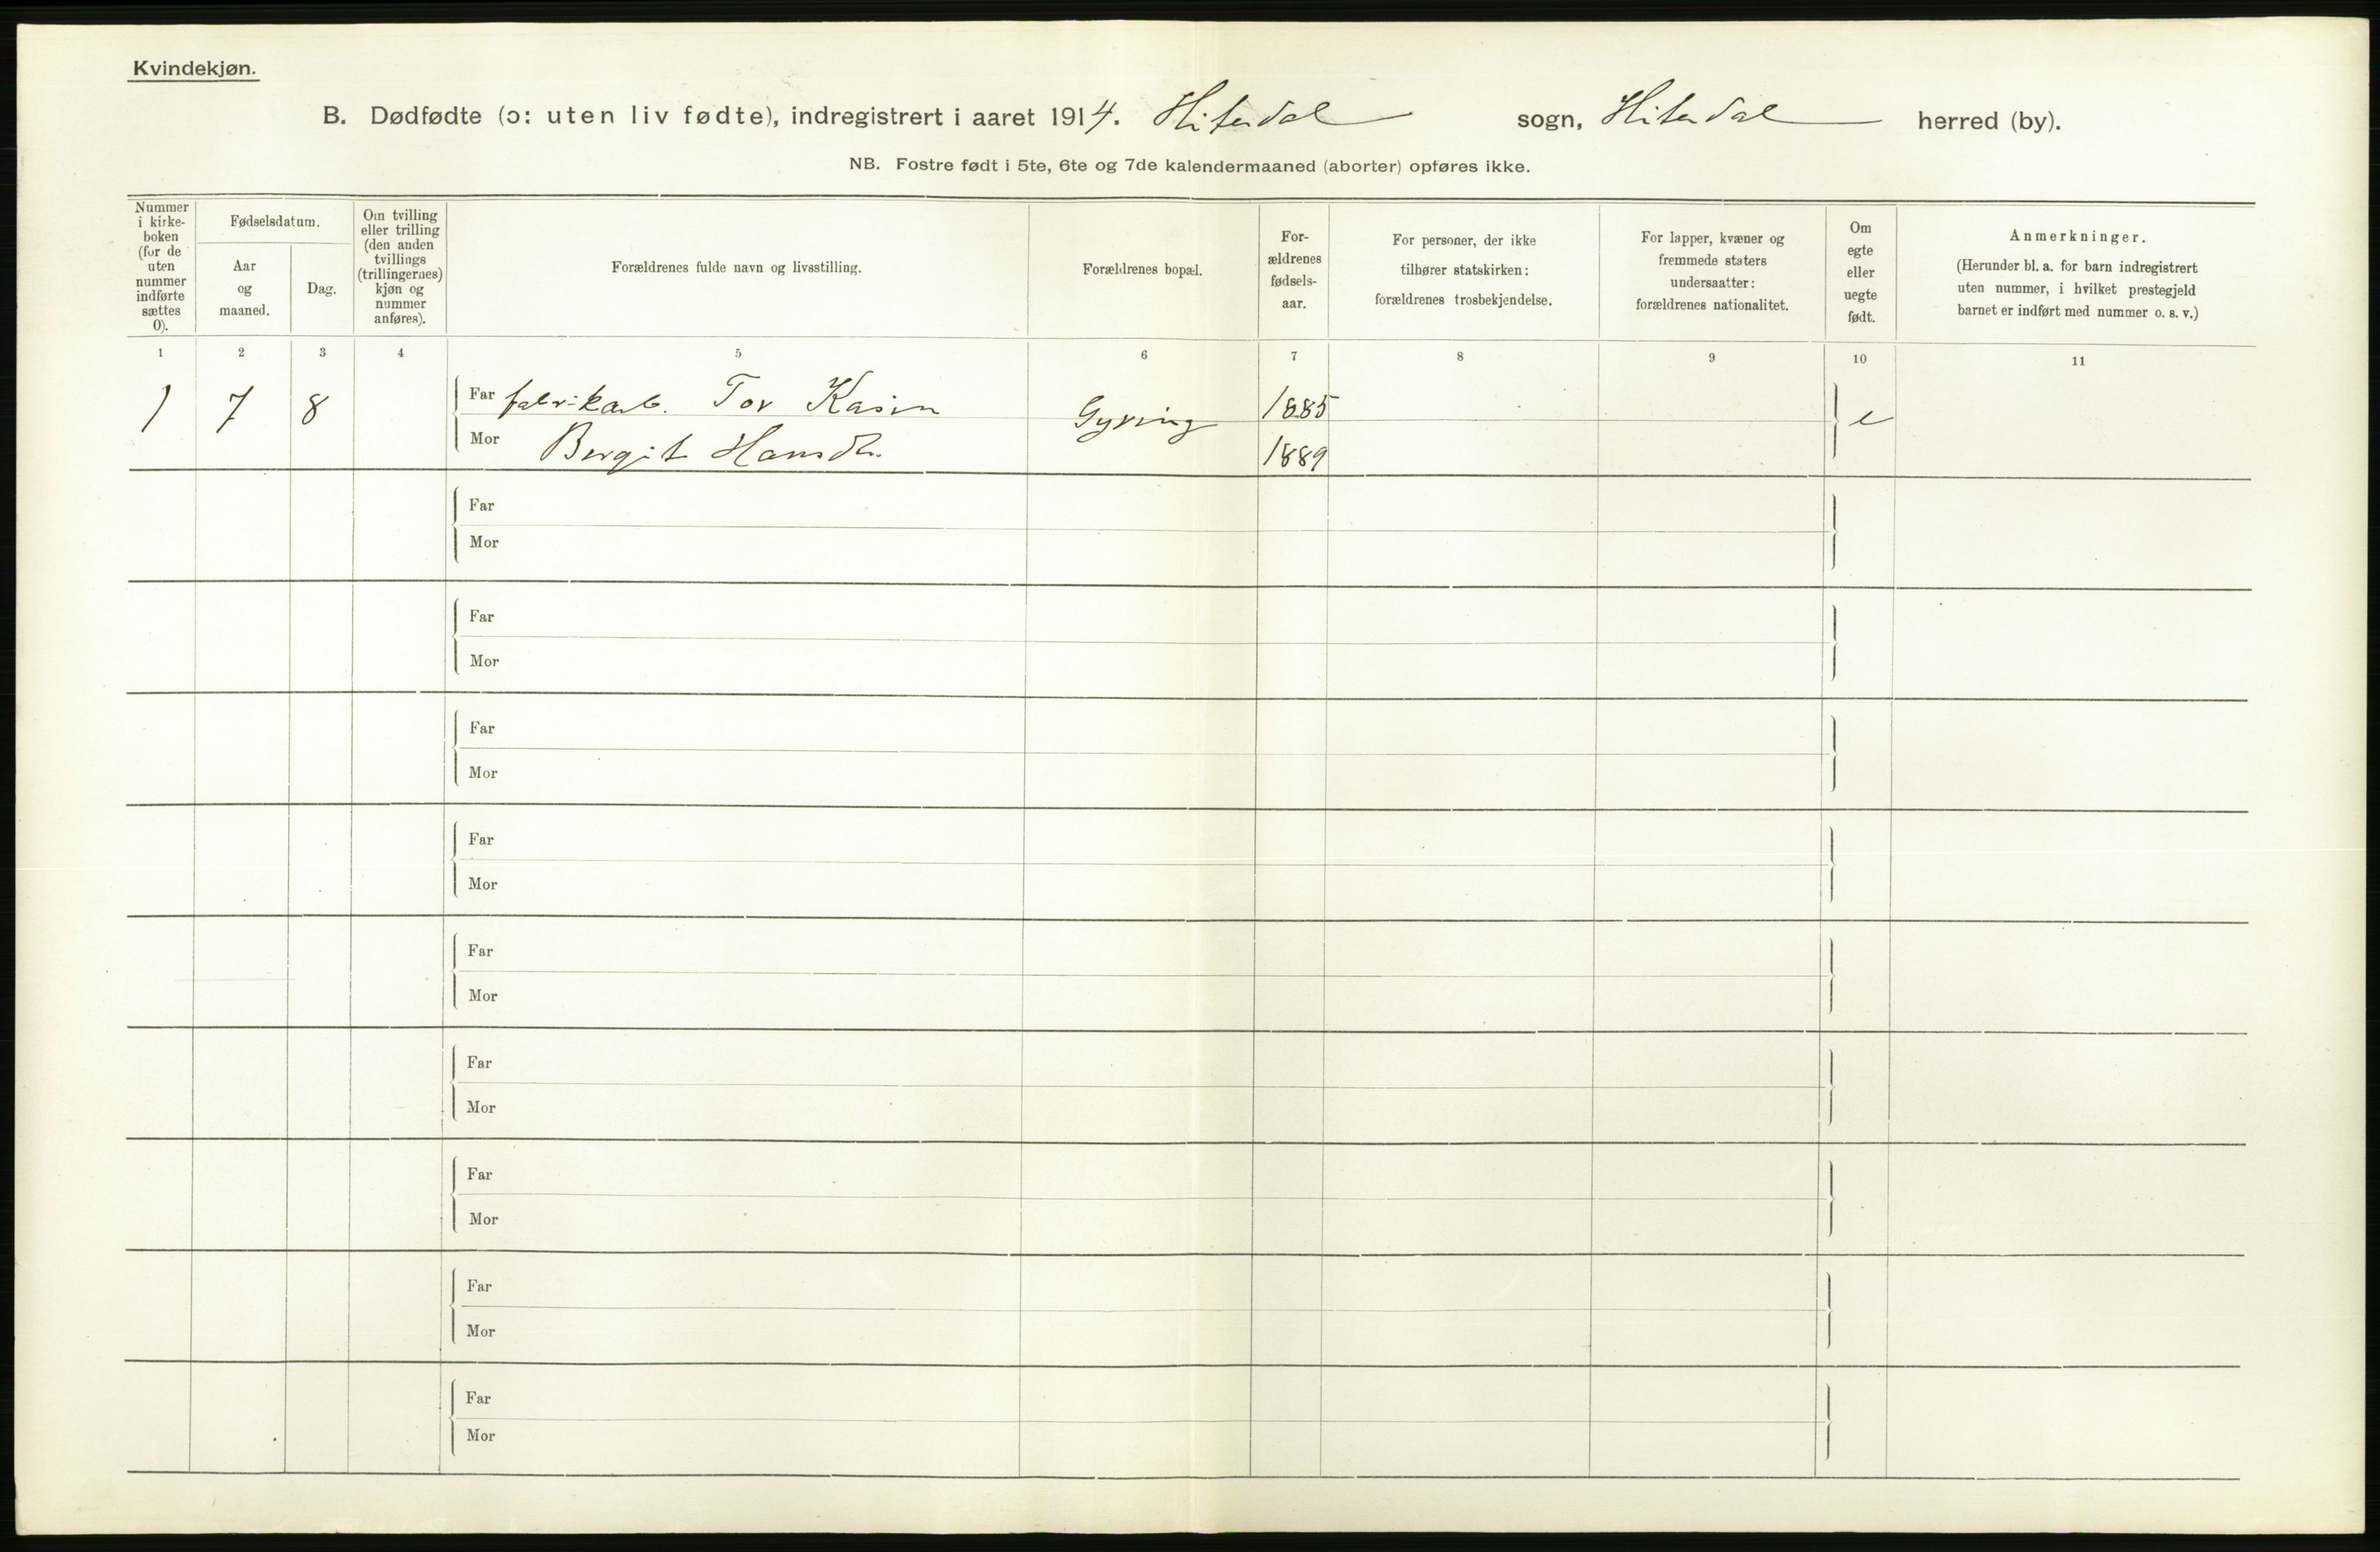 Kvindekjøn.
B. Dødfødte (ɔ: uten liv fødte), indregistrert i aaret 1914. Hiterdal sogn, Hiterdal herred (by).
NB. Fostre født i 5te, 6te og 7de kalendermaaned (aborter) opføres ikke.
Nummer
i kirke-
boken
(for de
uten
nummer
indførte
sættes
0).
Fødselsdatum.
Aar
og
maaned.
Dag.
Om tvilling
eller trilling
(den anden
tvillings
(trillingernes)
kjøn og
nummer
anføres).
Forældrenes fulde navn og livsstilling.
Forældrenes bopæl.
For-
ældrenes
fødsels-
aar.
For personer, der ikke
tilhører statskirken:
forældrenes trosbekjendelse.
For lapper, kvæner og
fremmede staters
undersaatter:
forældrenes nationalitet.
Om
egte
eller
uegte
født.
Anmerkninger.
(Herunder bl. a. for barn indregistrert
uten nummer, i hvilket prestegjeld
barnet er indført med nummer o. s. v.)
1 2 3 4 5 6 7 8 9 10 11
1 7 8
Far fabrikarb. Tor Kasin
Mor Bergit Hansdr.
Gyving
1885
1889
e
Far
Mor
Far
Mor
Far
Mor
Far
Mor
Far
Mor
Far
Mor
Far
Mor
Far
Mor
Far
Mor